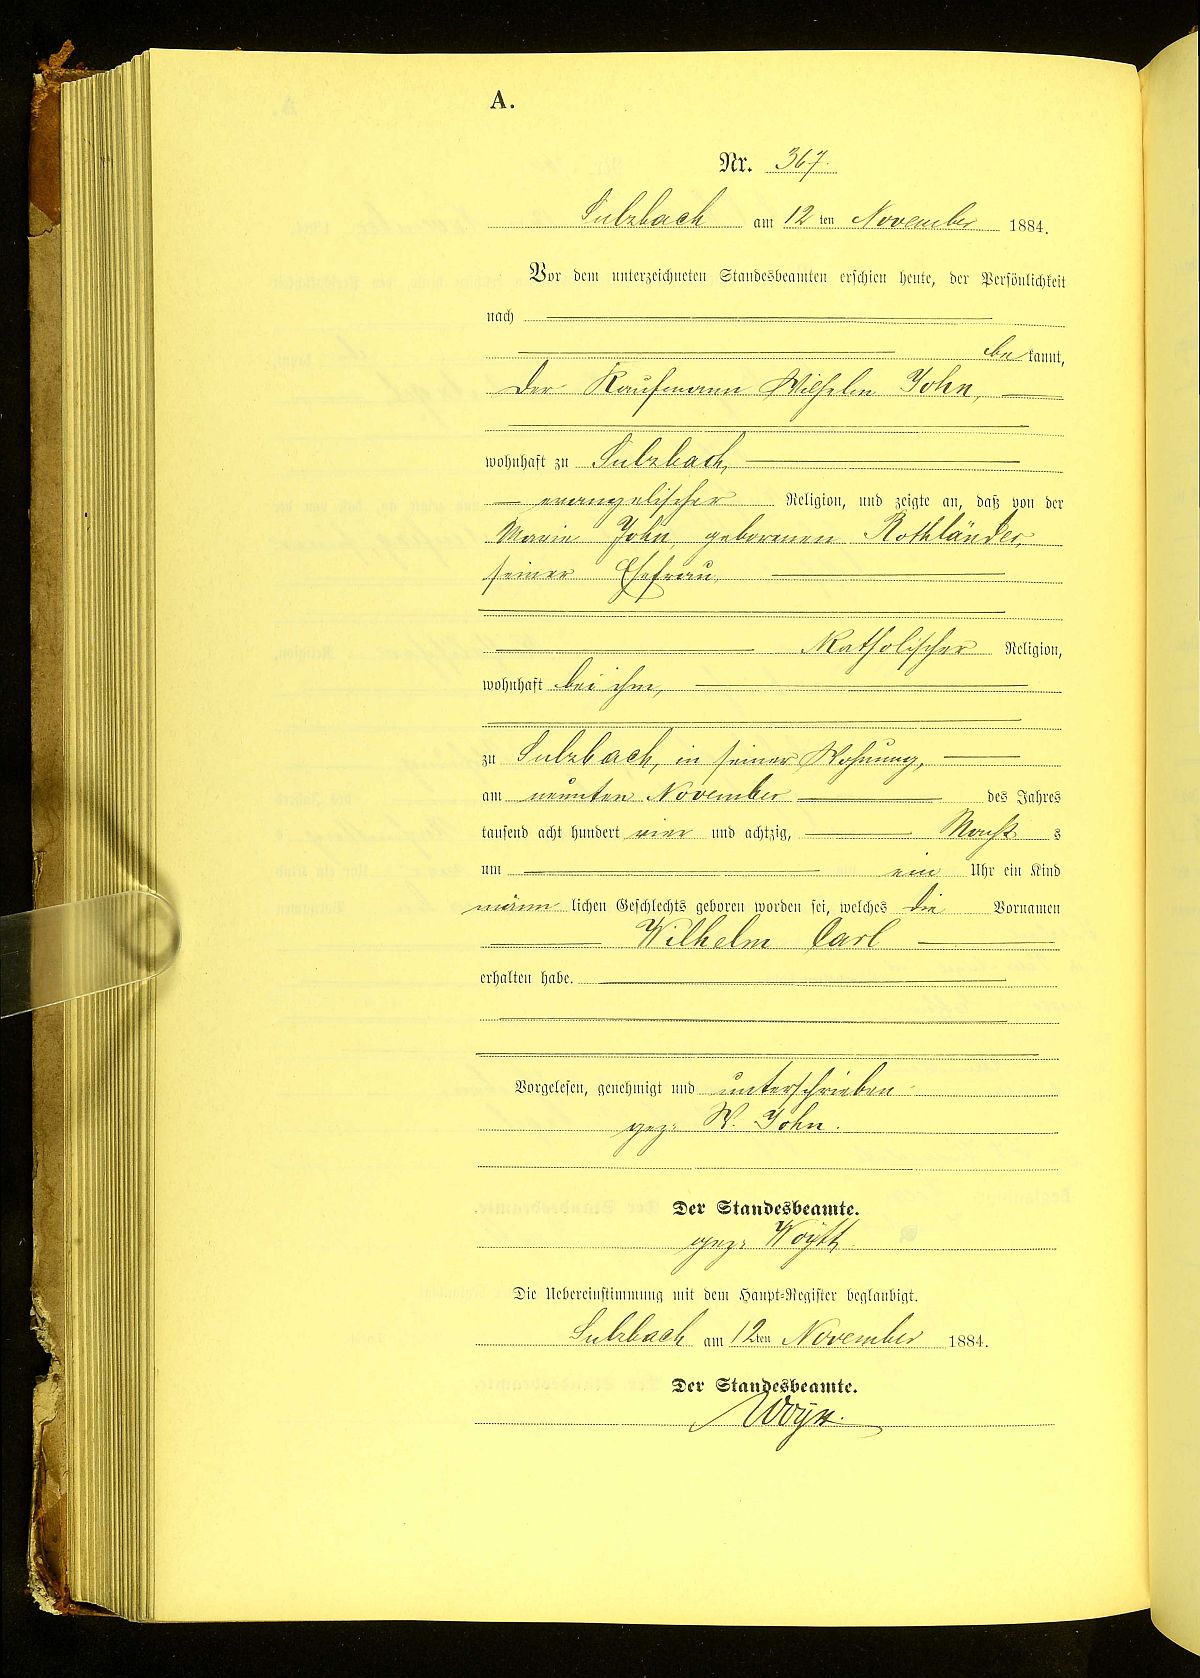 A.
Nr. 367.
Sulzbach am 12 ten November 1884.
Vor dem unterzeichneten Standesbeamten erschien heute, der Persönlichkeit
nach
be kannt,
der Kaufmann Wilhelm John,
wohnhaft zu Sulzbach,
evangelischer Religion, und zeigte an, daß von der
Marie John, geborenen Rothländer,
seiner Ehefrau,
katholischer Religion,
wohnhaft bei ihm,
zu Sulzbach, in seiner Wohnung,
am neunten November des Jahres
tausend acht hundert vier und achtzig, Nacht s
um ein Uhr ein Kind
männ lichen Geschlechts geboren worden sei, welches die Vornamen
Wilhelm Carl
erhalten habe.
Vorgelesen, genehmigt und unterschrieben
gez. W. John.
Der Standesbeamte.
gez. Woytt.
Die Uebereinstimmung mit dem Haupt-Register beglaubigt.
Sulzbach am 12ten November 1884.
Der Standesbeamte.
Woytt.